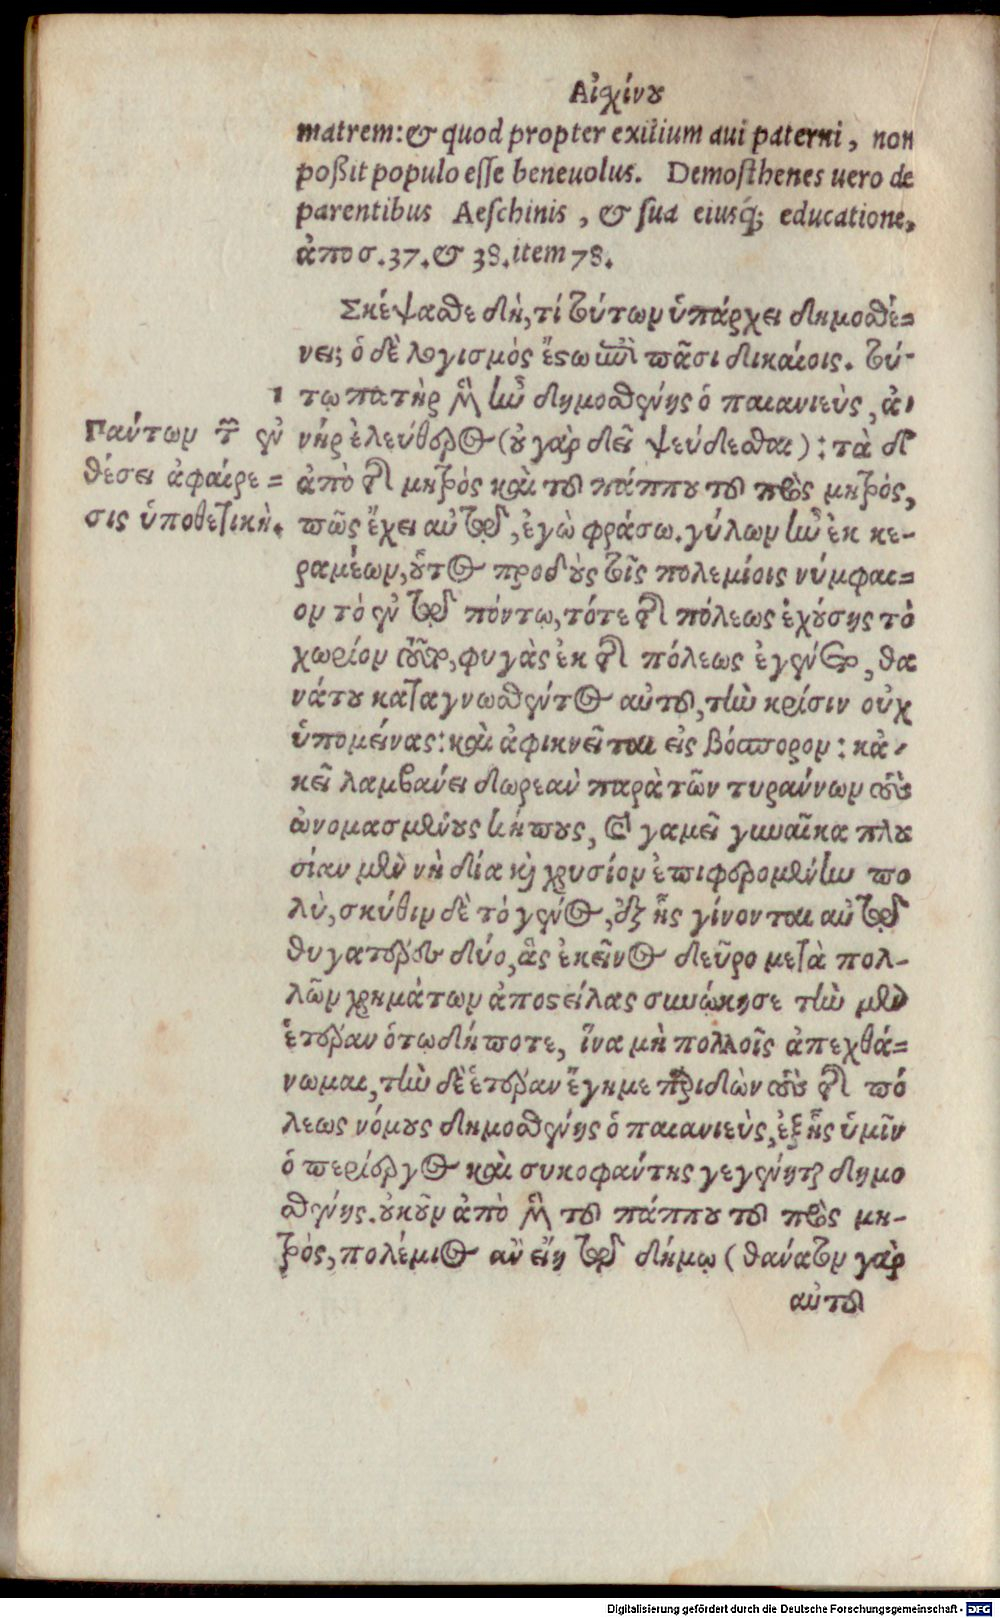 Αἰσχίνου
matrem: & quod propter exilium aui paterni, non
poßit populo esse beneuolus. Demosthenes uero de
parentibus Aeschinis, & sua eiusq́; educatione,
ἀπο σ. 37. & 38. item 78.
Σκέψασθε δὴ, τί τούτων ὑπάρχει δημοσθέ=
νει; ὁ δὲ λογισμὸς ἔστω ἐπὶ πᾶσι δικαίοις. τού-
1 τῳ πατὴρ μὲν ἦν δημοσθένης ὁ παιανιεὺς, ἀ-
Πάντων τῶν ἐν
νὴρ ἐλεύθερος (οὐ γὰρ δεῖ ψεύδεσθαι): τὰ δ'
θέσει ἀφαίρε=
ἀπὸ τῆς μητρὸς καὶ τοῦ πάππου τοῦ πρὸς μητρὸς,
σις ὑποθετικὴ.
πῶς ἔχει αὐτῷ, ἐγὼ φράσω. γύλων ἦν ἐκ κε-
ραμέων, οὗτος προδοὺς τοῖς πολεμίοις νύμφαι=
ον τὸ ἐν τῷ πόντῳ, τότε τῆς πόλεως ἐχούσης τὸ
χωρίον τοῦτο, φυγὰς ἐκ τῆς πόλεως ἐγένετο, θα
νάτου καταγνωσθέντος αὐτοῦ, τὴν κρίσιν οὐχ
ὑπομείνας: καὶ ἀφικνεῖται εἰς βόσπορον: κἀ-
κεῖ λαμβάνει δωρεὰν παρὰ τῶν τυράννων τοὺς
ὠνομασμένους κήπους, καὶ γαμεῖ γυναῖκα πλου
σίαν μὲν νὴ δία καὶ χρυσίον ἐπιφερομένην πο
λὺ, σκύθιν δὲ τὸ γένος, ἐξ ἧς γίνονται αὐτῷ
θυγατέρες δύο, ἃς ἐκεῖνος δεῦρο μετὰ πολ-
λῶν χρημάτων ἀποστείλας συνώκησε τὴν μὲν
ἑτέραν ὁτῳδήποτε, ἵνα μὴ πολλοῖς ἀπεχθά=
νωμαι, τὴν δὲ ἑτέραν ἔγημε παριδὼν τοὺς τῆς πό
λεως νόμους δημοσθένης ὁ παιανιεὺς, ἐξ ἧς ὑμῖν
ὁ περίεργος καὶ συκοφάντης γεγένηται δημο
σθένης. οὐκοῦν ἀπὸ μὲν τοῦ πάππου τοῦ πρὸς μη-
τρὸς, πολέμιος ἂν εἴη τῷ δήμῳ (θάνατον γὰρ
αὐτοῦ
Digitalisierung gefördert durch die Deutsche Forschungsgemeinschaft - DFG